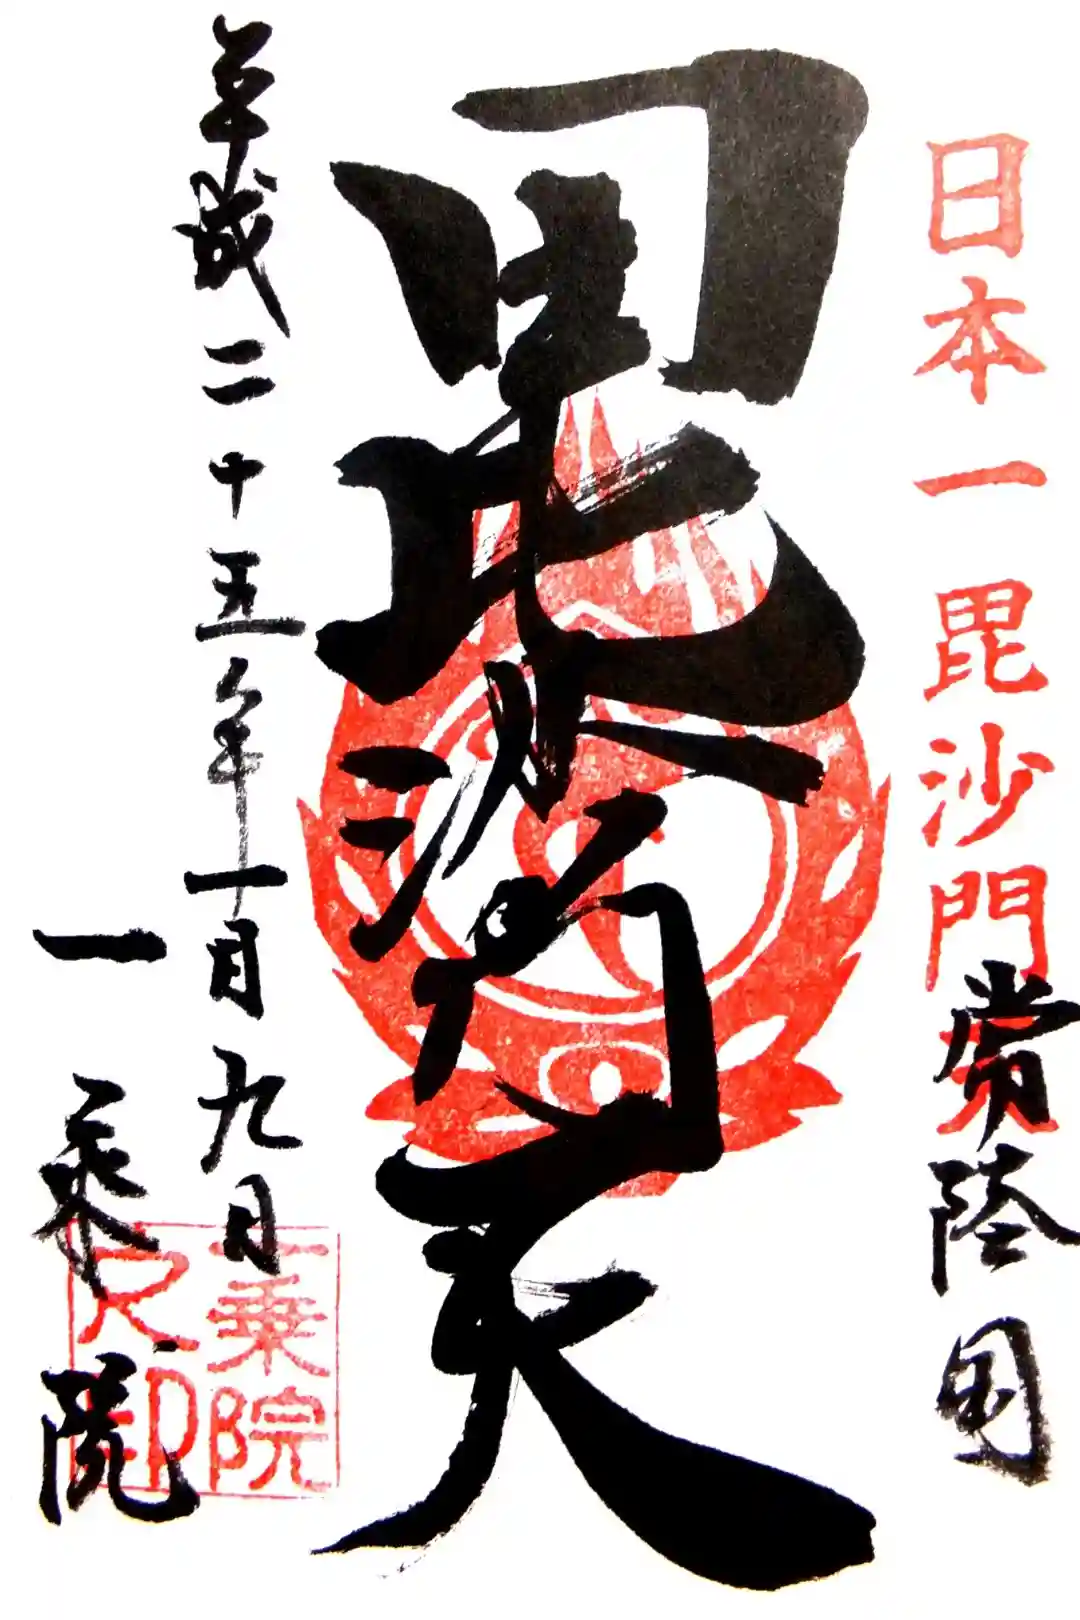 日本一毘沙門天
常陸国
毘沙門天
平成二十五年一月九日
一乗院
一乗院之印